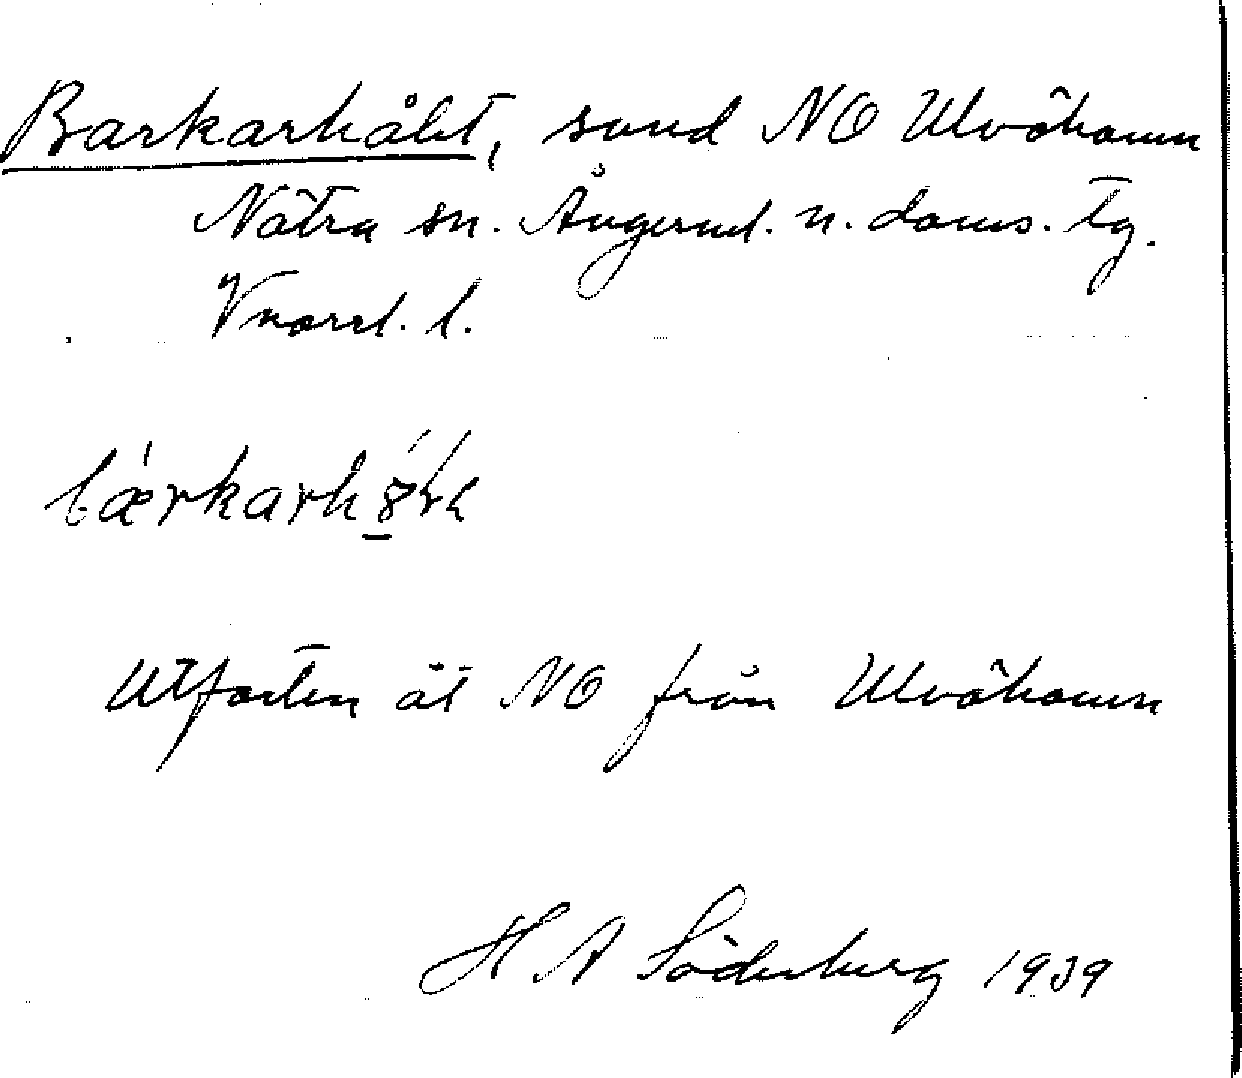 Barkarhålet, sund NO Ulvöhamn
Nätra sn. Ångerml. n. doms. tg.
Vnorrl. l.
Utfarten åt NO från Ulvöhamn
H A Söderberg 1939